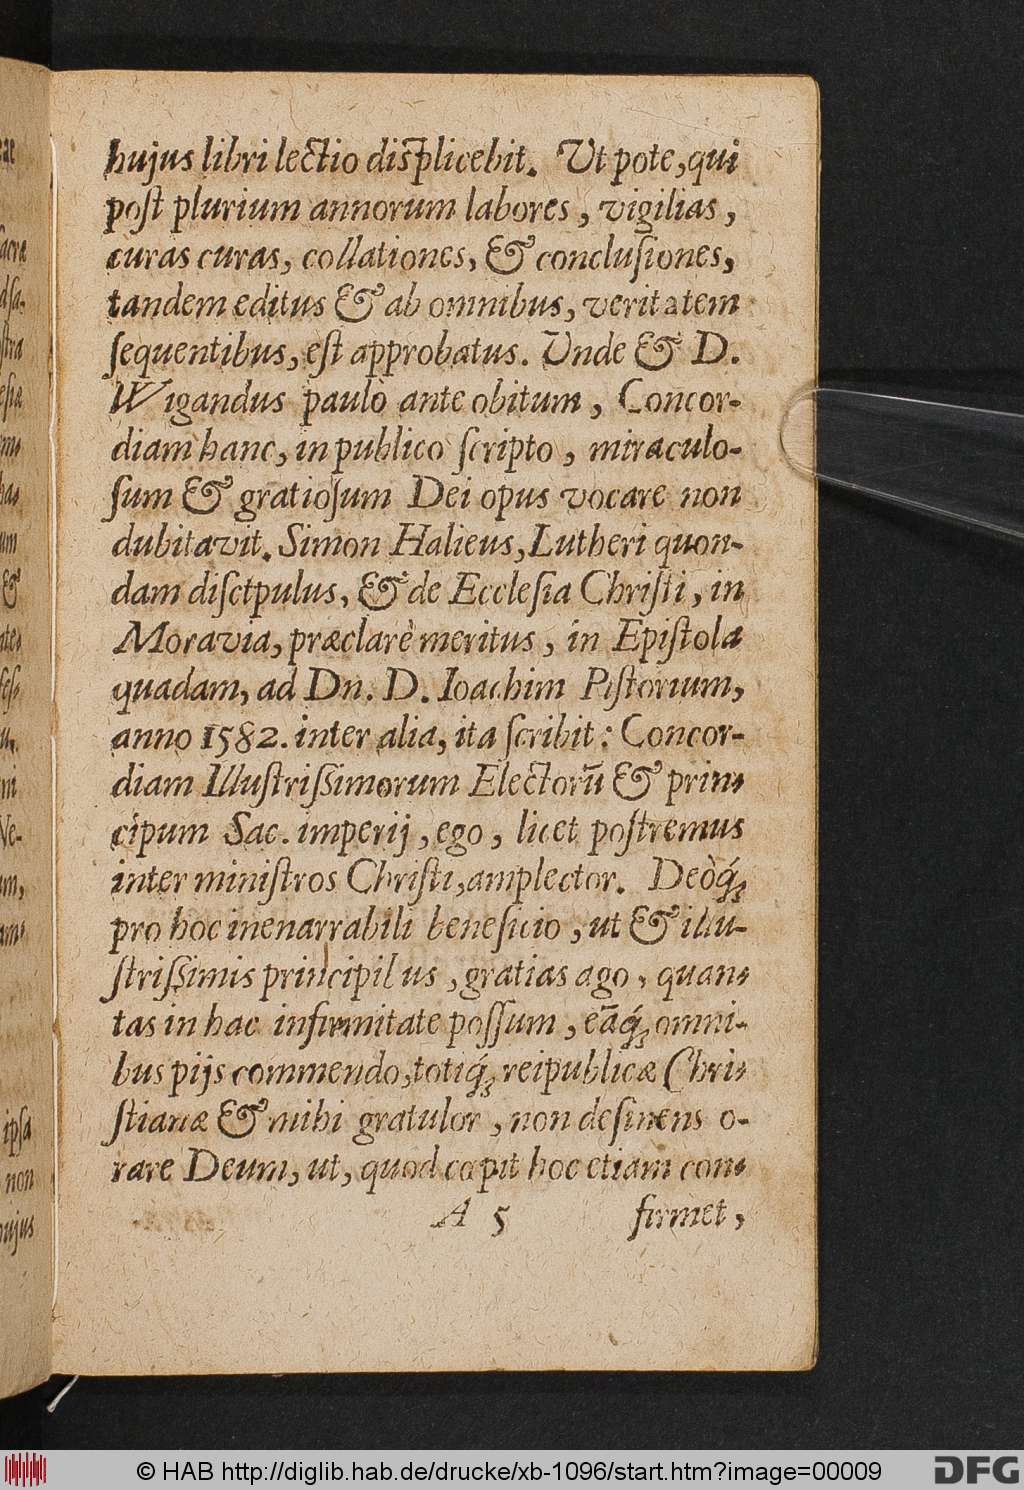 hujus libri lectio displicebit. Ut pote, qui
post plurium annorum labores, vigilias,
curas curas, collationes, & conclusiones,
tandem editus & ab omnibus, veritatem
sequentibus, est approbatus. Unde & D.
Wigandus paulò ante obitum, Concor-
diam hanc, in publico scripto, miraculo-
sum & gratiosum Dei opus vocare non
dubitavit. Simon Halieus, Lutheri quon-
dam disctpulus, & de Ecclesia Christi, in
Moravia, præclarè meritus, in Epistola
quadam, ad Dn. D. Ioachim Pistorium,
anno 1582. inter alia, ita scribit: Concor-
diam Illustrissimorum Electorũ & prin-
cipum Sac. imperij, ego, licet postremus
inter ministros Christi, amplector. Deòq́;
pro hoc inenarrabili beneficio, ut & illu-
strissimis principil us, gratias ago, quan-
tas in hac infirmitate possum, eãq́; omni-
bus pijs commendo, totiq́; reipublicæ Chri-
stianæ & mihi gratulor, non desinens o-
rare Deum, ut, quod cœpit hoc etiam con-
A 5 firmet,
© HAB http://diglib.hab.de/drucke/xb-1096/start.htm?image=00009
DFG